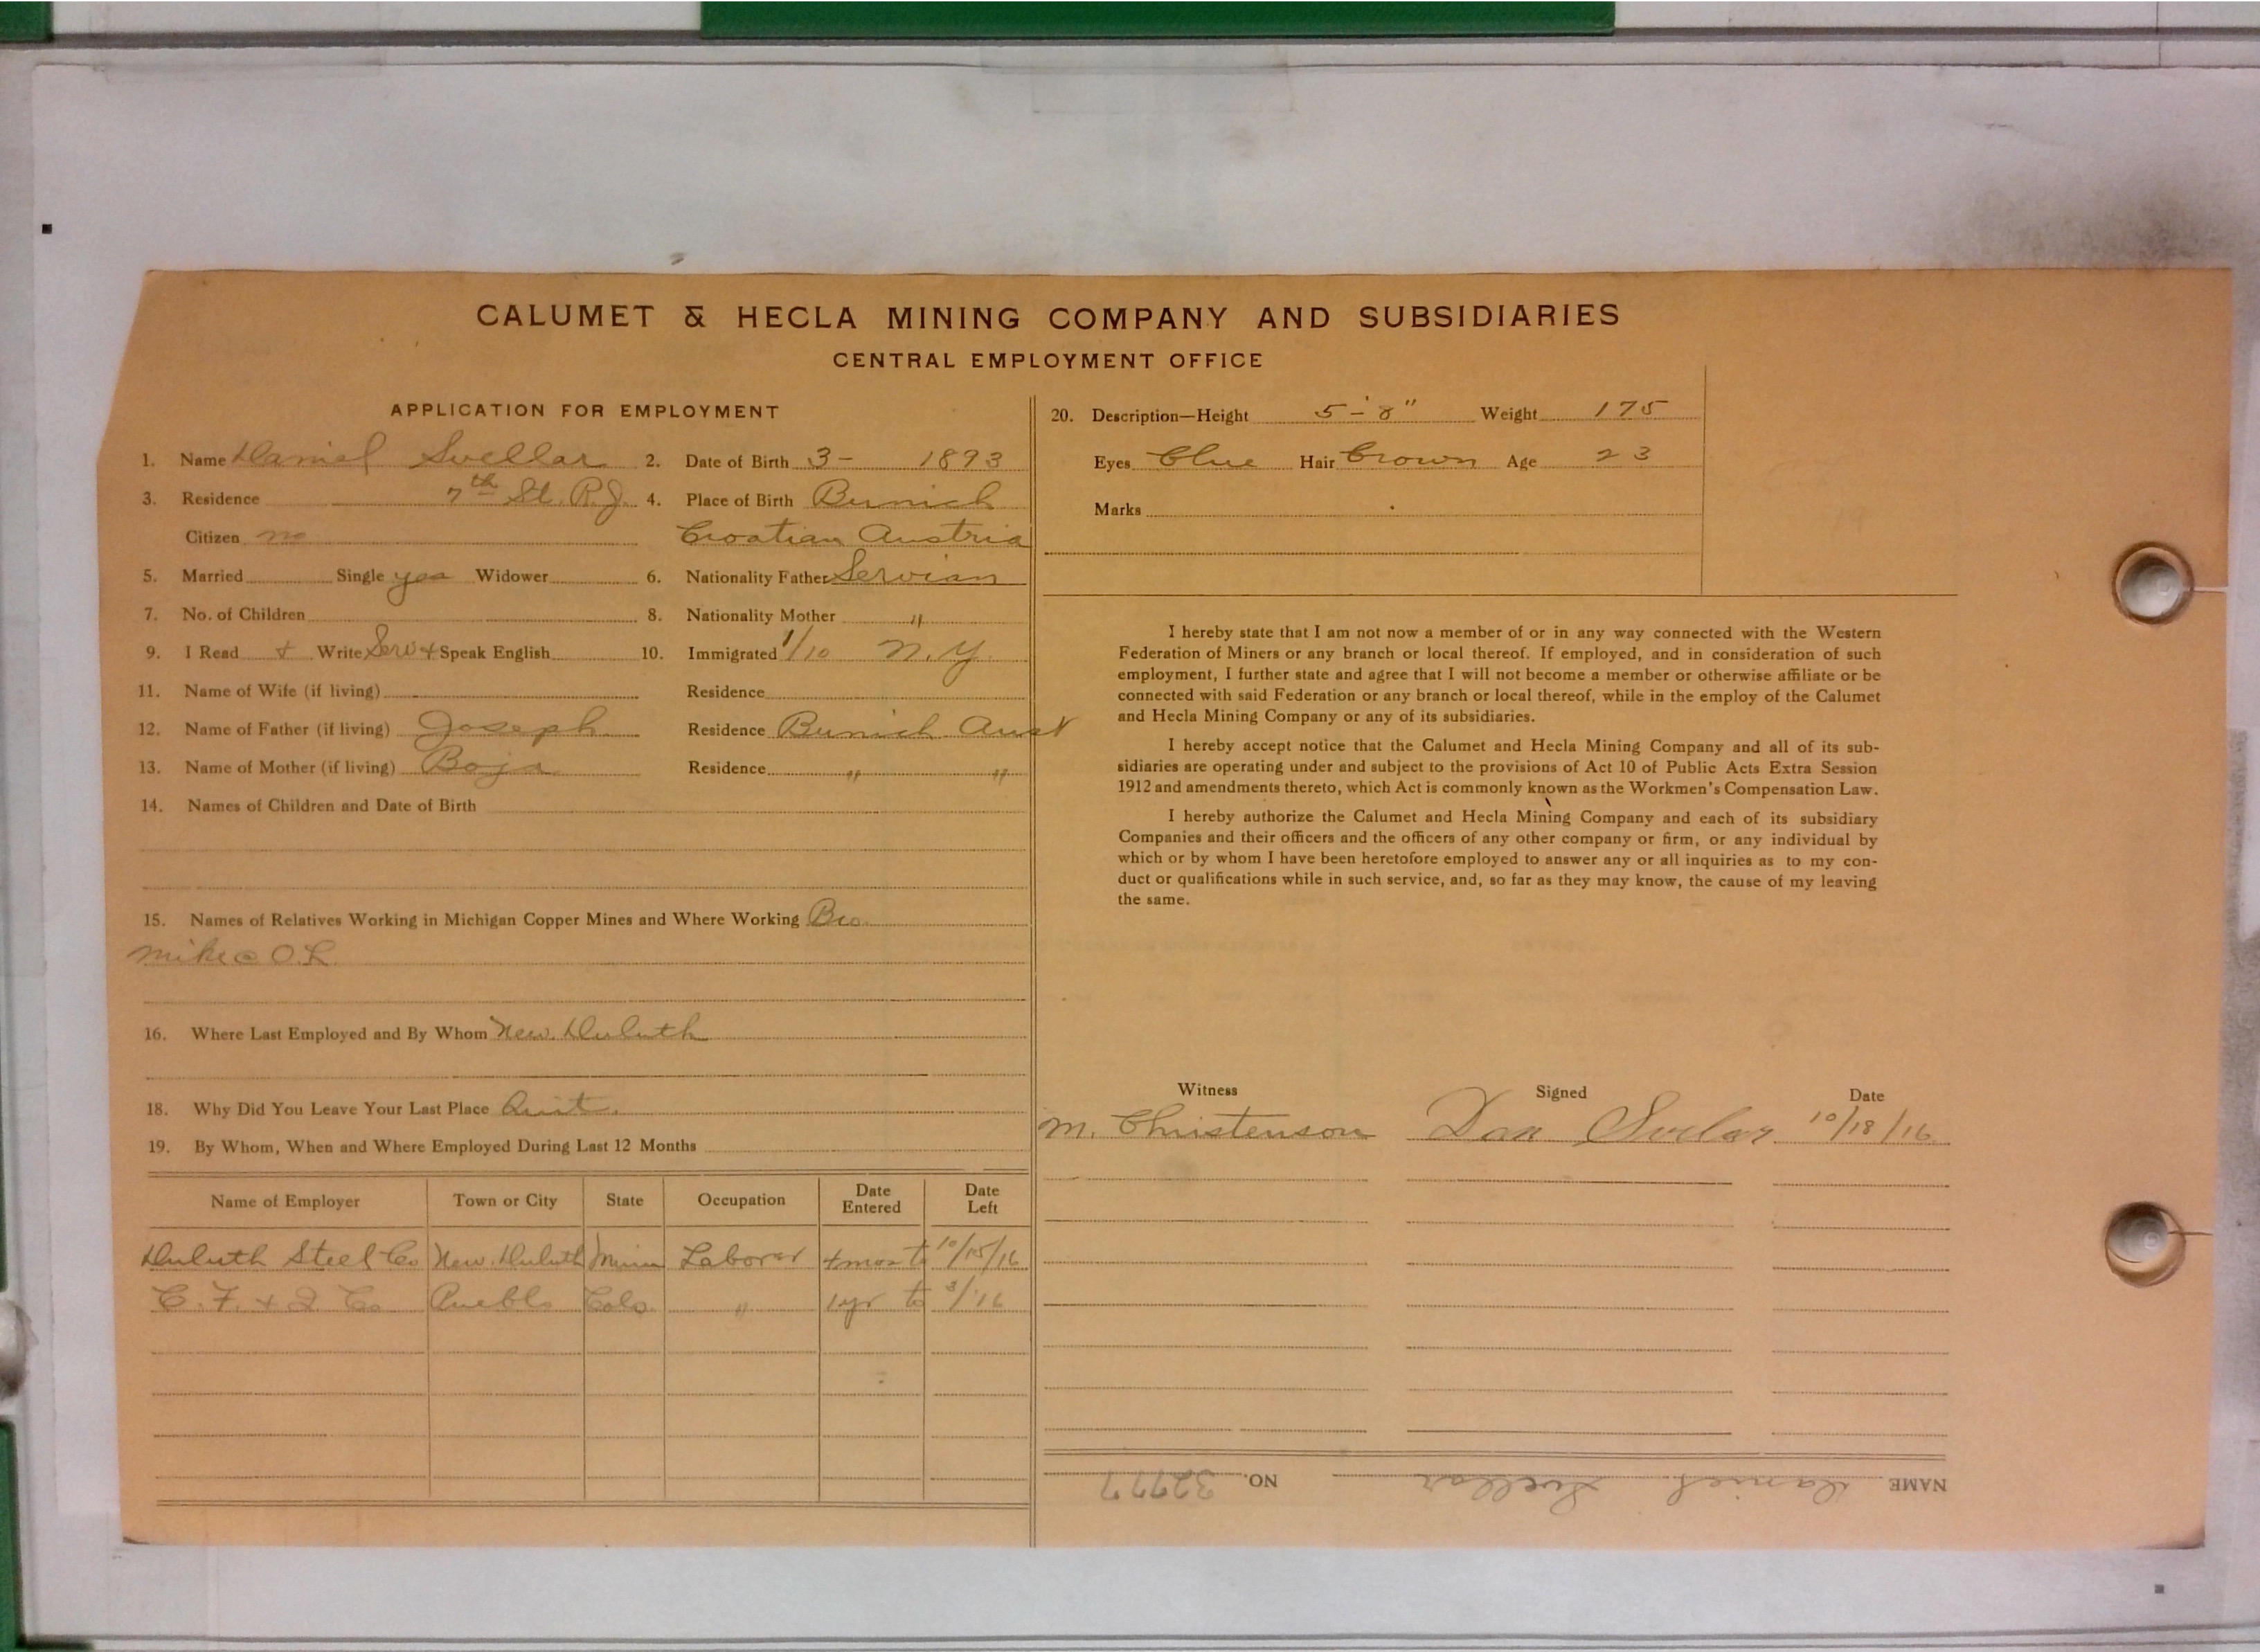 CALUMET & HECLA MINING COMPANY AND SUBSIDIARIES
CENTRAL EMPLOYMENT OFFICE
APPLICATION FOR EMPLOYMENT
1. Name Daniel Svellar 2. Date of Birth 3- 1893
3. Residence 7th St. R.J. 4. Place of Birth Bunich
Citizen no Croatian Austria
5. Married Single yes Widower 6. Nationality Father Servian
7. No. of Children 8. Nationality Mother "
9. I Read + Write Serv + Speak English 10. Immigrated 1/10 N.Y.
11. Name of Wife (if living) Residence
12. Name of Father (if living) Joseph Residence Bunich Aust
13. Name of Mother (if living) Boja Residence " "
14. Names of Children and Date of Birth
15. Names of Relatives Working in Michigan Copper Mines and Where Working Bro.
Mike @ O.L.
16. Where Last Employed and By Whom New Duluth
18. Why Did You Leave Your Last Place Quit.
19. By Whom, When and Where Employed During Last 12 Months
Name of Employer Town or City State Occupation Date Entered Date Left
Duluth Steel Co New Duluth Minn Laborer 4 mos to 10/15/16
C. F. & I Co Pueblo Colo. " 1 yr to 3/16
20. Description—Height 5-8" Weight 175
Eyes Blue Hair Brown Age 23
Marks
I hereby state that I am not now a member of or in any way connected with the Western
Federation of Miners or any branch or local thereof. If employed, and in consideration of such
employment, I further state and agree that I will not become a member or otherwise affiliate or be
connected with said Federation or any branch or local thereof, while in the employ of the Calumet
and Hecla Mining Company or any of its subsidiaries.
I hereby accept notice that the Calumet and Hecla Mining Company and all of its sub-
sidiaries are operating under and subject to the provisions of Act 10 of Public Acts Extra Session
1912 and amendments thereto, which Act is commonly known as the Workmen's Compensation Law.
I hereby authorize the Calumet and Hecla Mining Company and each of its subsidiary
Companies and their officers and the officers of any other company or firm, or any individual by
which or by whom I have been heretofore employed to answer any or all inquiries as to my con-
duct or qualifications while in such service, and, so far as they may know, the cause of my leaving
the same.
Witness Signed Date
M. Christenson Dan Svelar 10/18/16
NAME Daniel Svellar NO. 32777